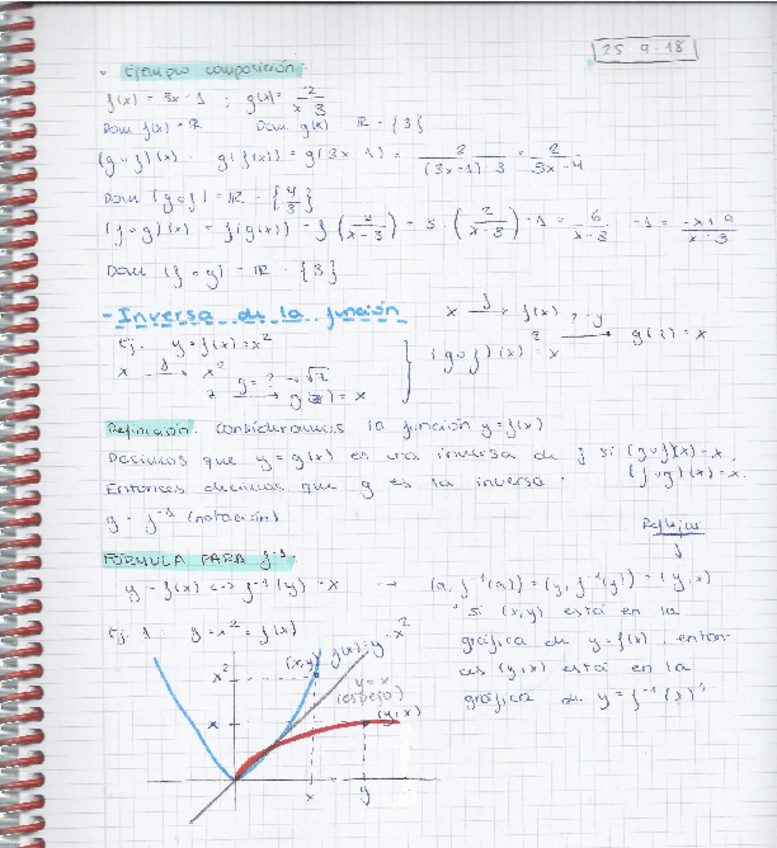 25·9·18
- Ejemplo composición.
f(x) = 3x - 1 ; g(x) = 2/(x-3)
Dom f(x) = ℝ Dom g(x) ℝ - {3}
(g∘f)(x) = g(f(x)) = g(3x-1) = 2/((3x-1)-3) = 2/(3x-4)
Dom (g∘f) = ℝ - {4/3}
(f∘g)(x) = f(g(x)) = f(2/(x-3)) = 3·(2/(x-3)) - 1 = 6/(x-3) - 1 = (-x+9)/(x-3)
Dom (f∘g) = ℝ - {3}
- Inversa de la función
x →f f(x) ? = y → g(z) = x
Ej. y = f(x) = x²
(g∘f)(x) =? x
x →f x²
g = ? → √z
z → g(z) = x
Definición. Consideramos la función y = f(x)
Decimos que y = g(x) es una inversa de f si (g∘f)(x) = x,
(f∘g)(x) = x.
Entonces decimos que g es la inversa.
g = f⁻¹ (notación)
Reflejar
f
FÓRMULA PARA f⁻¹.
y = f(x) <=> f⁻¹(y) = x → (a, f⁻¹(a)) = (y, f⁻¹(y)) = (y, x)
"si (x,y) está en la
gráfica de y = f(x), enton-
ces (y,x) está en la
gráfica de y = f⁻¹(x)"
Ej. 1: y = x² = f(x)
(x,y) f(x) = y = x²
x²
y = x
(espejo)
x
(y,x)
x y